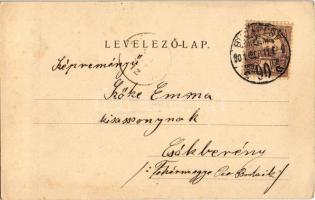 LEVELEZŐ-LAP.
Képreményű
Szőke Emma
kisasszonynak
Csákberény
/: Fehérmegye